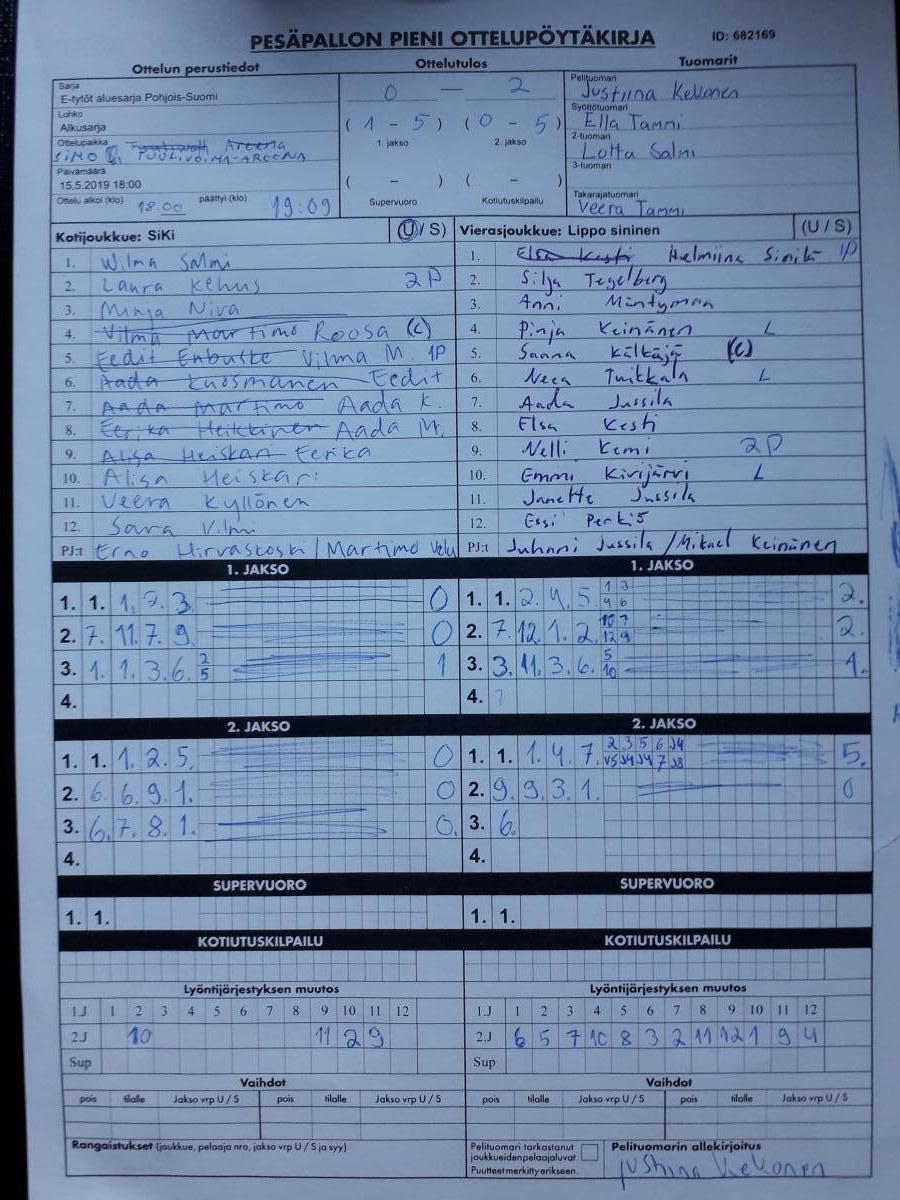 PESÄPALLON PIENI OTTELUPÖYTÄKIRJA ID: 682169
Ottelun perustiedot Ottelutulos Tuomarit
Sarja
E-tytöt aluesarja Pohjois-Suomi
Lohko
Alkusarja
Ottelupaikka Areena
SIMO TUULIVOIMA-AREENA
Päivämäärä
15.5.2019 18:00
Ottelu alkoi (klo) 18.00 päättyi (klo) 19:09
0 — 2
( 1 - 5 ) ( 0 - 5 )
1. jakso 2. jakso
( - ) ( - )
Supervuoro Kotiutuskilpailu
Pelituomari
Justiina Kekonen
Syöttötuomari
Ella Tammi
2-tuomari
Lotta Salmi
3-tuomari
Takarajatuomari
Veera Tammi
Kotijoukkue: SiKi (U / S)
1. Wilma Salmi
2. Laura Kehus 2P
3. Minja Niva
4. Vilma Martimo Roosa (C)
5. Eedit Enbuske Vilma M. 1P
6. Aada Kuosmanen Eedit
7. Aada Martimo Aada K.
8. Eerika Heikkinen Aada M.
9. Alisa Heiskari Eerika
10. Alisa Heiskari
11. Veera Kyllönen
12. Sara Vilmi
PJ:t Erno Hirvaskoski / Martimo Velu
Vierasjoukkue: Lippo sininen (U / S)
1. Elsa Kesti Helmiina Sinilä 1P
2. Silja Tegelberg
3. Anni Mäntymaa
4. Pinja Keinänen L
5. Sanna Kälkäjä (C)
6. Neea Tuikkala L
7. Aada Jussila
8. Elsa Kesti
9. Nelli Kemi 2P
10. Emmi Kivijärvi L
11. Janette Jussila
12. Essi Perkiö
PJ:t Juhani Jussila / Mikael Keinänen
1. JAKSO
1. 1. 1. 2. 3. 0
2. 7. 11. 7. 9. 0
3. 1. 1. 3. 6. 2 1
5
4.
1. JAKSO
1. 1. 2. 4. 5. 1 3 2.
4 6
2. 7. 12. 1. 2. 10 7 2.
12 9
3. 3. 11. 3. 6. 5 1.
10
4.
2. JAKSO
1. 1. 1. 2. 5. 0
2. 6. 6. 9. 1. 0
3. 6. 7. 8. 1. 0.
4.
2. JAKSO
1. 1. 1. 4. 7. 2 3 5 6 J4 5.
V5 J4 J4 7 J8
2. 9. 9. 3. 1. 0
3. 6.
4.
SUPERVUORO SUPERVUORO
1. 1. 1. 1.
KOTIUTUSKILPAILU KOTIUTUSKILPAILU
Lyöntijärjestyksen muutos
1.J 1 2 3 4 5 6 7 8 9 10 11 12
2.J 10 11 2 9
Sup
Lyöntijärjestyksen muutos
1.J 1 2 3 4 5 6 7 8 9 10 11 12
2.J 6 5 7 10 8 3 2 11 12 1 9 4
Sup
Vaihdot Vaihdot
pois tilalle Jakso vrp U / S pois tilalle Jakso vrp U / S pois tilalle Jakso vrp U / S pois tilalle Jakso vrp U / S
Rangaistukset (joukkue, pelaaja nro, jakso vrp U / S ja syy)
Pelituomari tarkastanut
joukkueidenpelaajaluvat.
Puutteet merkitty erikseen.
Pelituomarin allekirjoitus
Justiina Kekonen